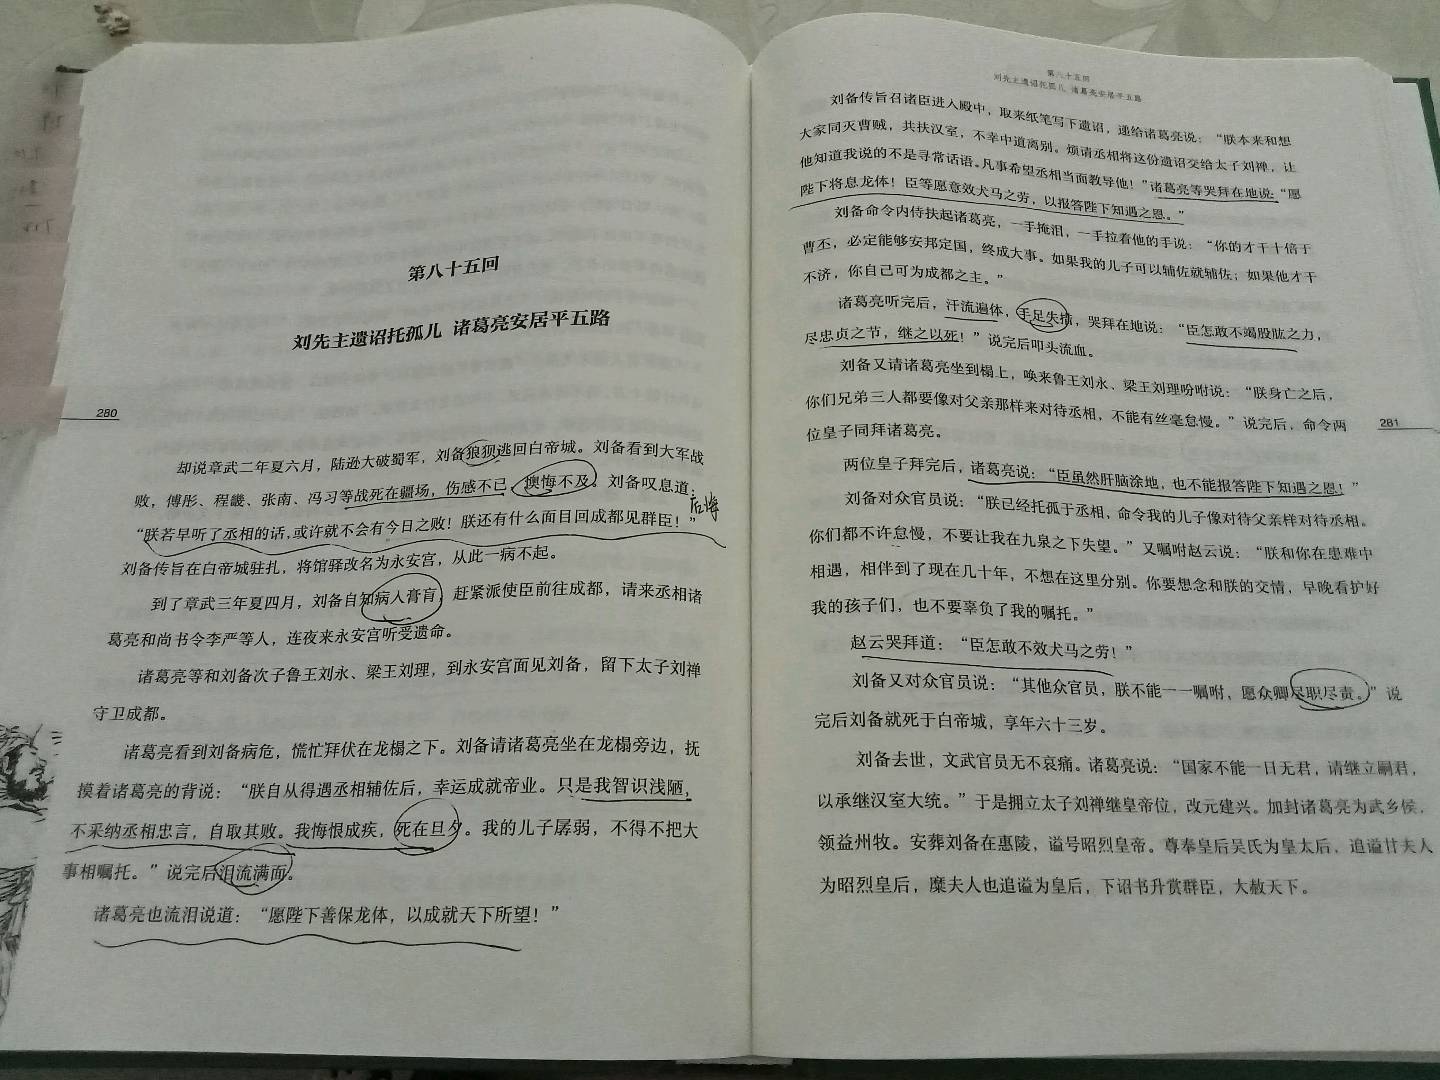 第八十五回
刘先主遗诏托孤儿 诸葛亮安居平五路
280
却说章武二年夏六月，陆逊大破蜀军，刘备狼狈逃回白帝城。刘备看到大军战
败，傅彤、程畿、张南、冯习等战死在疆场，伤感不已，懊悔不及。刘备叹息道：
后悔
“朕若早听了丞相的话，或许就不会有今日之败！朕还有什么面目回成都见群臣！”
刘备传旨在白帝城驻扎，将馆驿改名为永安宫，从此一病不起。
到了章武三年夏四月，刘备自知病入膏肓，赶紧派使臣前往成都，请来丞相诸
葛亮和尚书令李严等人，连夜来永安宫听受遗命。
诸葛亮等和刘备次子鲁王刘永、梁王刘理，到永安宫面见刘备，留下太子刘禅
守卫成都。
诸葛亮看到刘备病危，慌忙拜伏在龙榻之下。刘备请诸葛亮坐在龙榻旁边，抚
摸着诸葛亮的背说：“朕自从得遇丞相辅佐后，幸运成就帝业。只是我智识浅陋，
不采纳丞相忠言，自取其败。我悔恨成疾，死在旦夕。我的儿子孱弱，不得不把大
事相嘱托。”说完后泪流满面。
诸葛亮也流泪说道：“愿陛下善保龙体，以成就天下所望！”
第八十五回
刘先主遗诏托孤儿 诸葛亮安居平五路
刘备传旨召诸臣进入殿中，取来纸笔写下遗诏，递给诸葛亮说：“朕本来和想
大家同灭曹贼，共扶汉室，不幸中道离别。烦请丞相将这份遗诏交给太子刘禅，让
他知道我说的不是寻常话语。凡事希望丞相当面教导他！”诸葛亮等哭拜在地说：“愿
陛下将息龙体！臣等愿意效犬马之劳，以报答陛下知遇之恩。”
刘备命令内侍扶起诸葛亮，一手掩泪，一手拉着他的手说：“你的才干十倍于
曹丕，必定能够安邦定国，终成大事。如果我的儿子可以辅佐就辅佐；如果他才干
不济，你自己可为成都之主。”
诸葛亮听完后，汗流遍体，手足失措，哭拜在地说：“臣怎敢不竭股肱之力，
尽忠贞之节，继之以死！”说完后叩头流血。
刘备又请诸葛亮坐到榻上，唤来鲁王刘永、梁王刘理吩咐说：“朕身亡之后，
你们兄弟三人都要像对父亲那样来对待丞相，不能有丝毫怠慢。”说完后，命令两
位皇子同拜诸葛亮。
281
两位皇子拜完后，诸葛亮说：“臣虽然肝脑涂地，也不能报答陛下知遇之恩！”
刘备对众官员说：“朕已经托孤于丞相，命令我的儿子像对待父亲样对待丞相。
你们都不许怠慢，不要让我在九泉之下失望。”又嘱咐赵云说：“朕和你在患难中
相遇，相伴到了现在几十年，不想在这里分别。你要想念和朕的交情，早晚看护好
我的孩子们，也不要辜负了我的嘱托。”
赵云哭拜道：“臣怎敢不效犬马之劳！”
刘备又对众官员说：“其他众官员，朕不能一一嘱咐，愿众卿尽职尽责。”说
完后刘备就死于白帝城，享年六十三岁。
刘备去世，文武官员无不哀痛。诸葛亮说：“国家不能一日无君，请继立嗣君，
以承继汉室大统。”于是拥立太子刘禅继皇帝位，改元建兴。加封诸葛亮为武乡侯，
领益州牧。安葬刘备在惠陵，谥号昭烈皇帝。尊奉皇后吴氏为皇太后，追谥甘夫人
为昭烈皇后，糜夫人也追谥为皇后，下诏书升赏群臣，大赦天下。